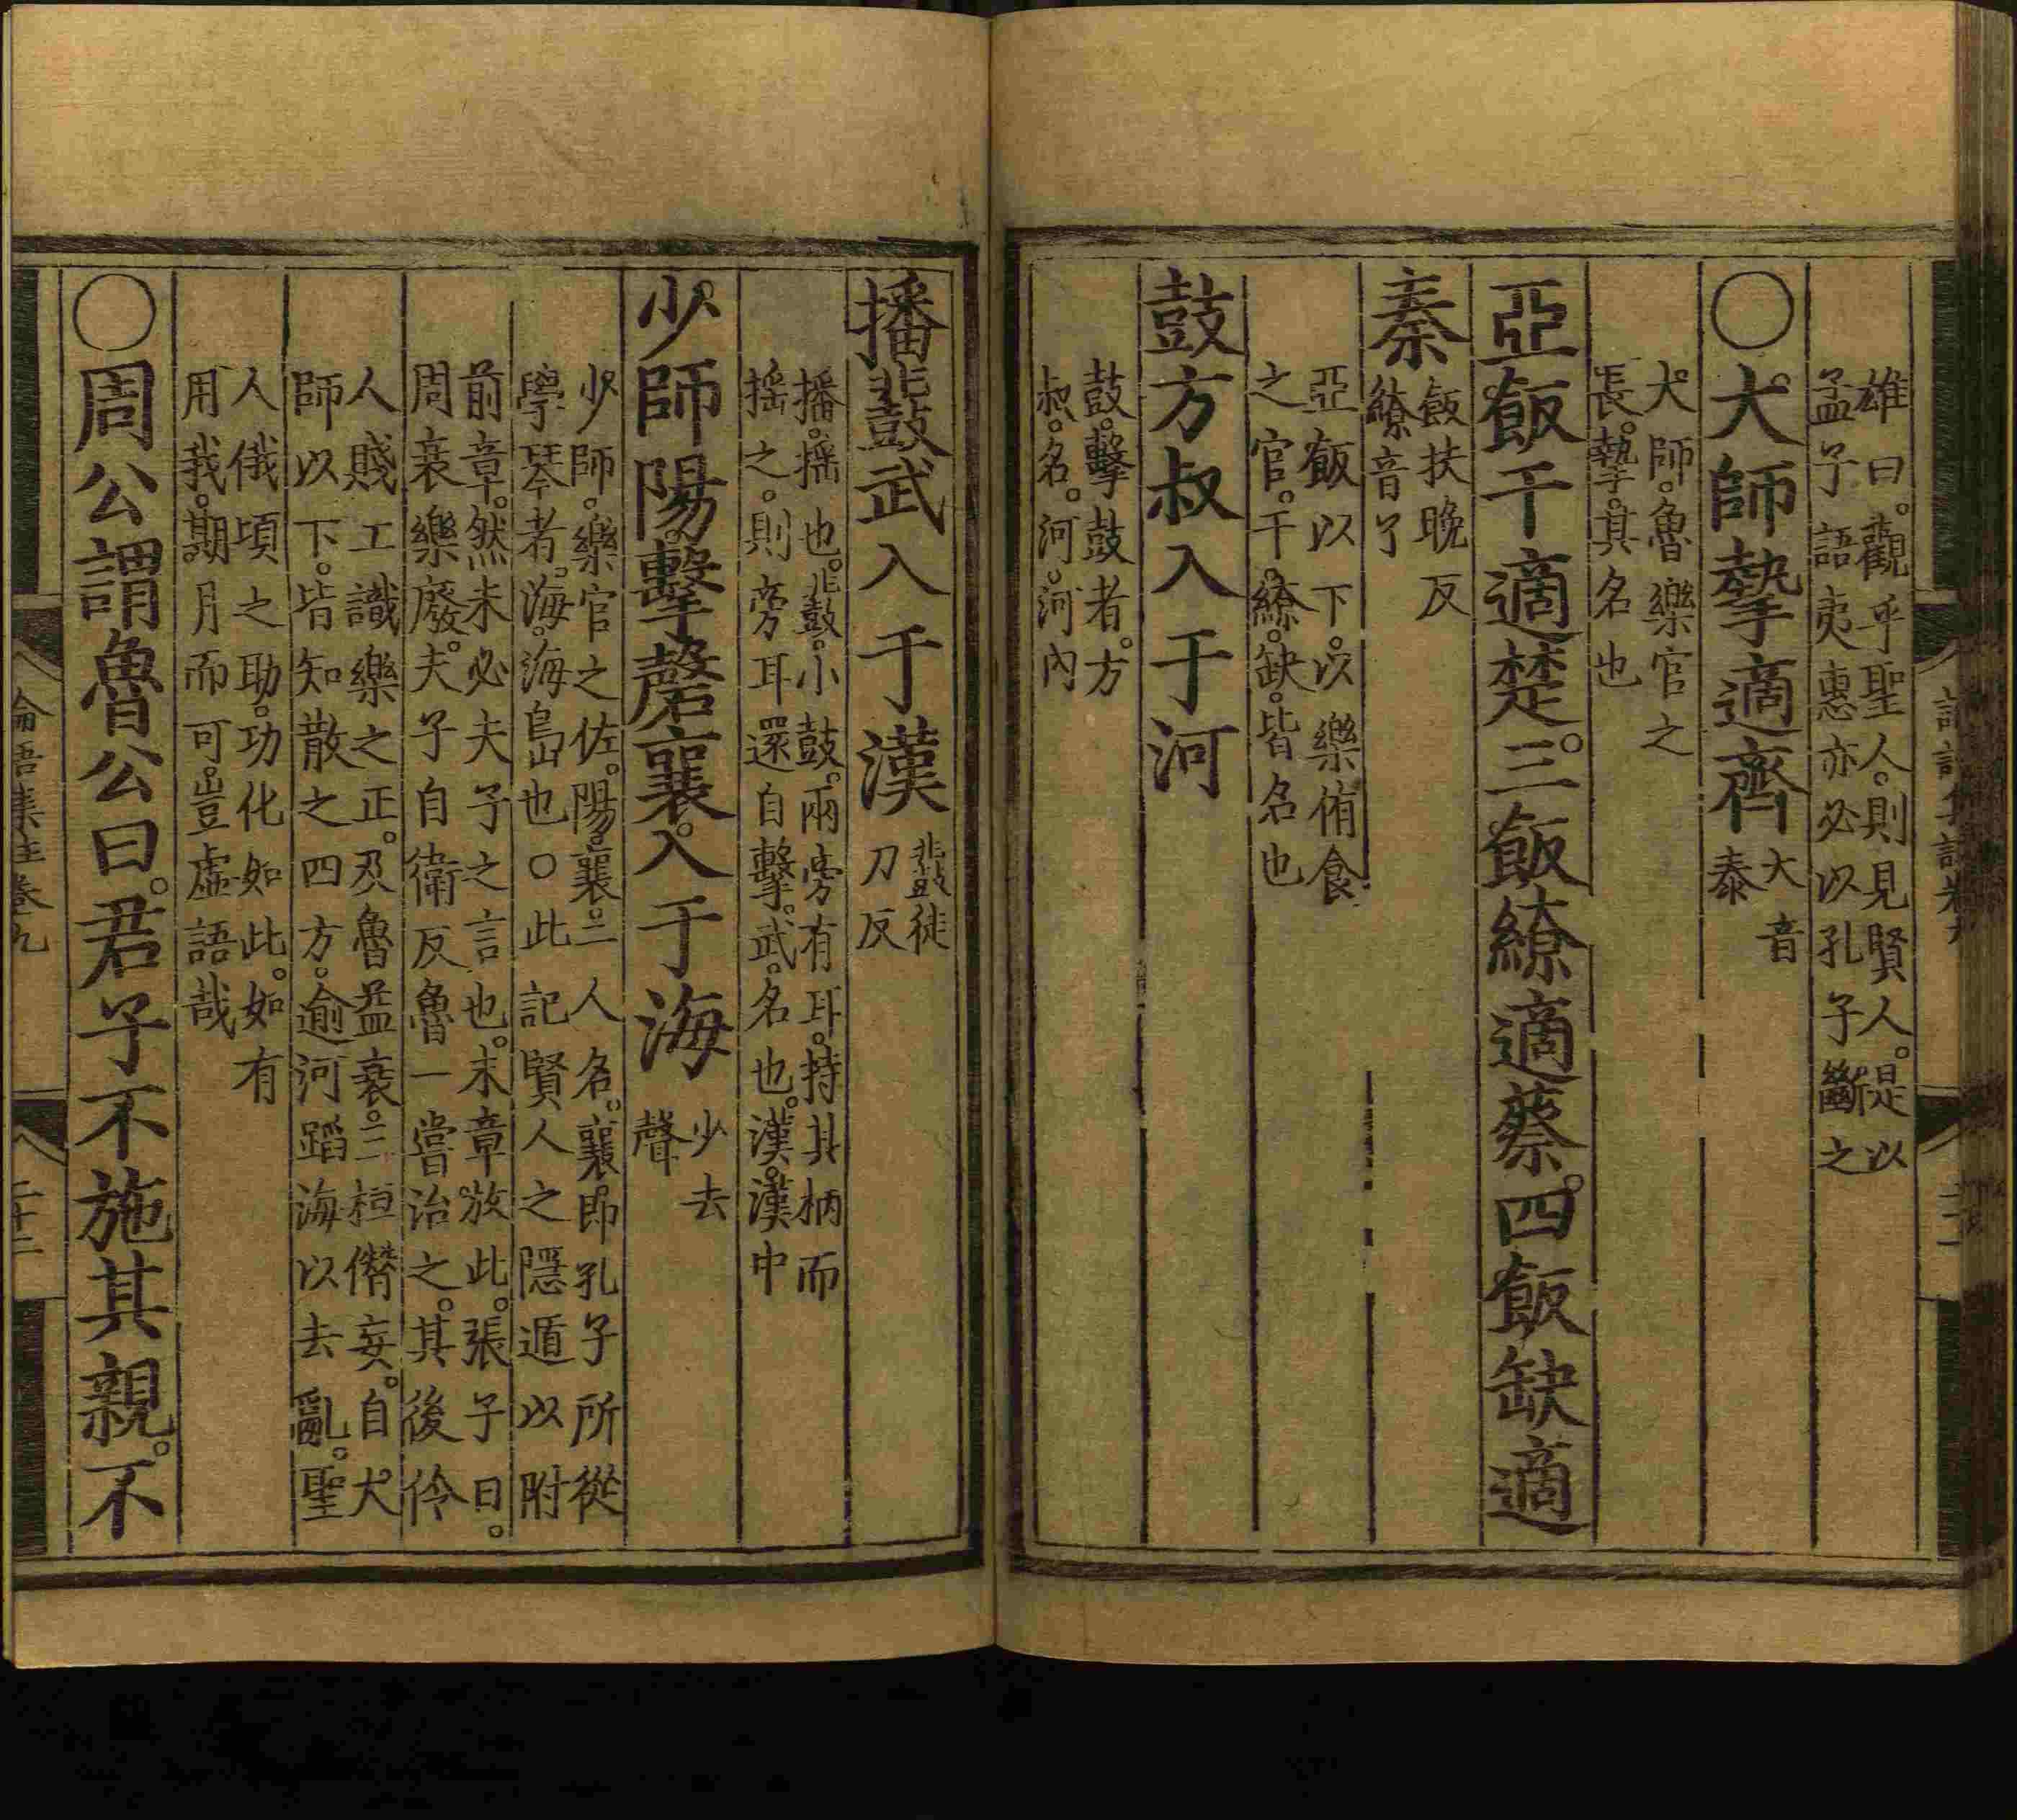 雄曰。觀乎聖人。則見賢人。是以
孟子語夷惠亦必以孔子斷之
〇大師摯適齊
大音
泰
大師。魯樂官之
長。摯。其名也
亞飯干適楚。三飯繚適蔡。四飯缺適
秦
飯扶晚反
繚音了
亞飯以下。以樂侑食
之官。干。繚。缺。皆名也
鼓方叔入于河
鼓。擊鼓者。方
叔。名。河。河內
播鼗武入于漢
鼗徒
刀反
播。搖也。鼗。小鼓。兩旁有耳。持其柄而
搖之。則旁耳還自擊。武。名也。漢。漢中
少師陽。擊磬襄。入于海
少去
聲
少師。樂官之佐。陽。襄。二人名。襄即孔子所從
學琴者。海。海島也〇此記賢人之隱遁以附
前章。然未必夫子之言也。末章放此。張子曰。
周衰樂廢。夫子自衛反魯一嘗治之。其後伶
人賤工識樂之正。及魯益衰。三桓僭妄。自大
師以下。皆知散之四方。逾河蹈海以去亂。聖
人俄頃之助。功化如此。如有
用我。期月而可。豈虛語哉
〇周公謂魯公曰。君子不施其親。不
論語集註卷九
二十二